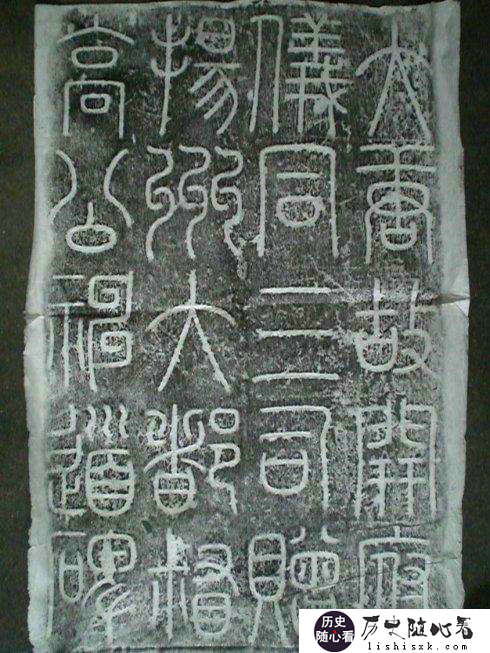 大唐故開府
儀同三司贈
揚州大都督
高公神道碑
历史
随心看
历史随心看
lishiszk.com